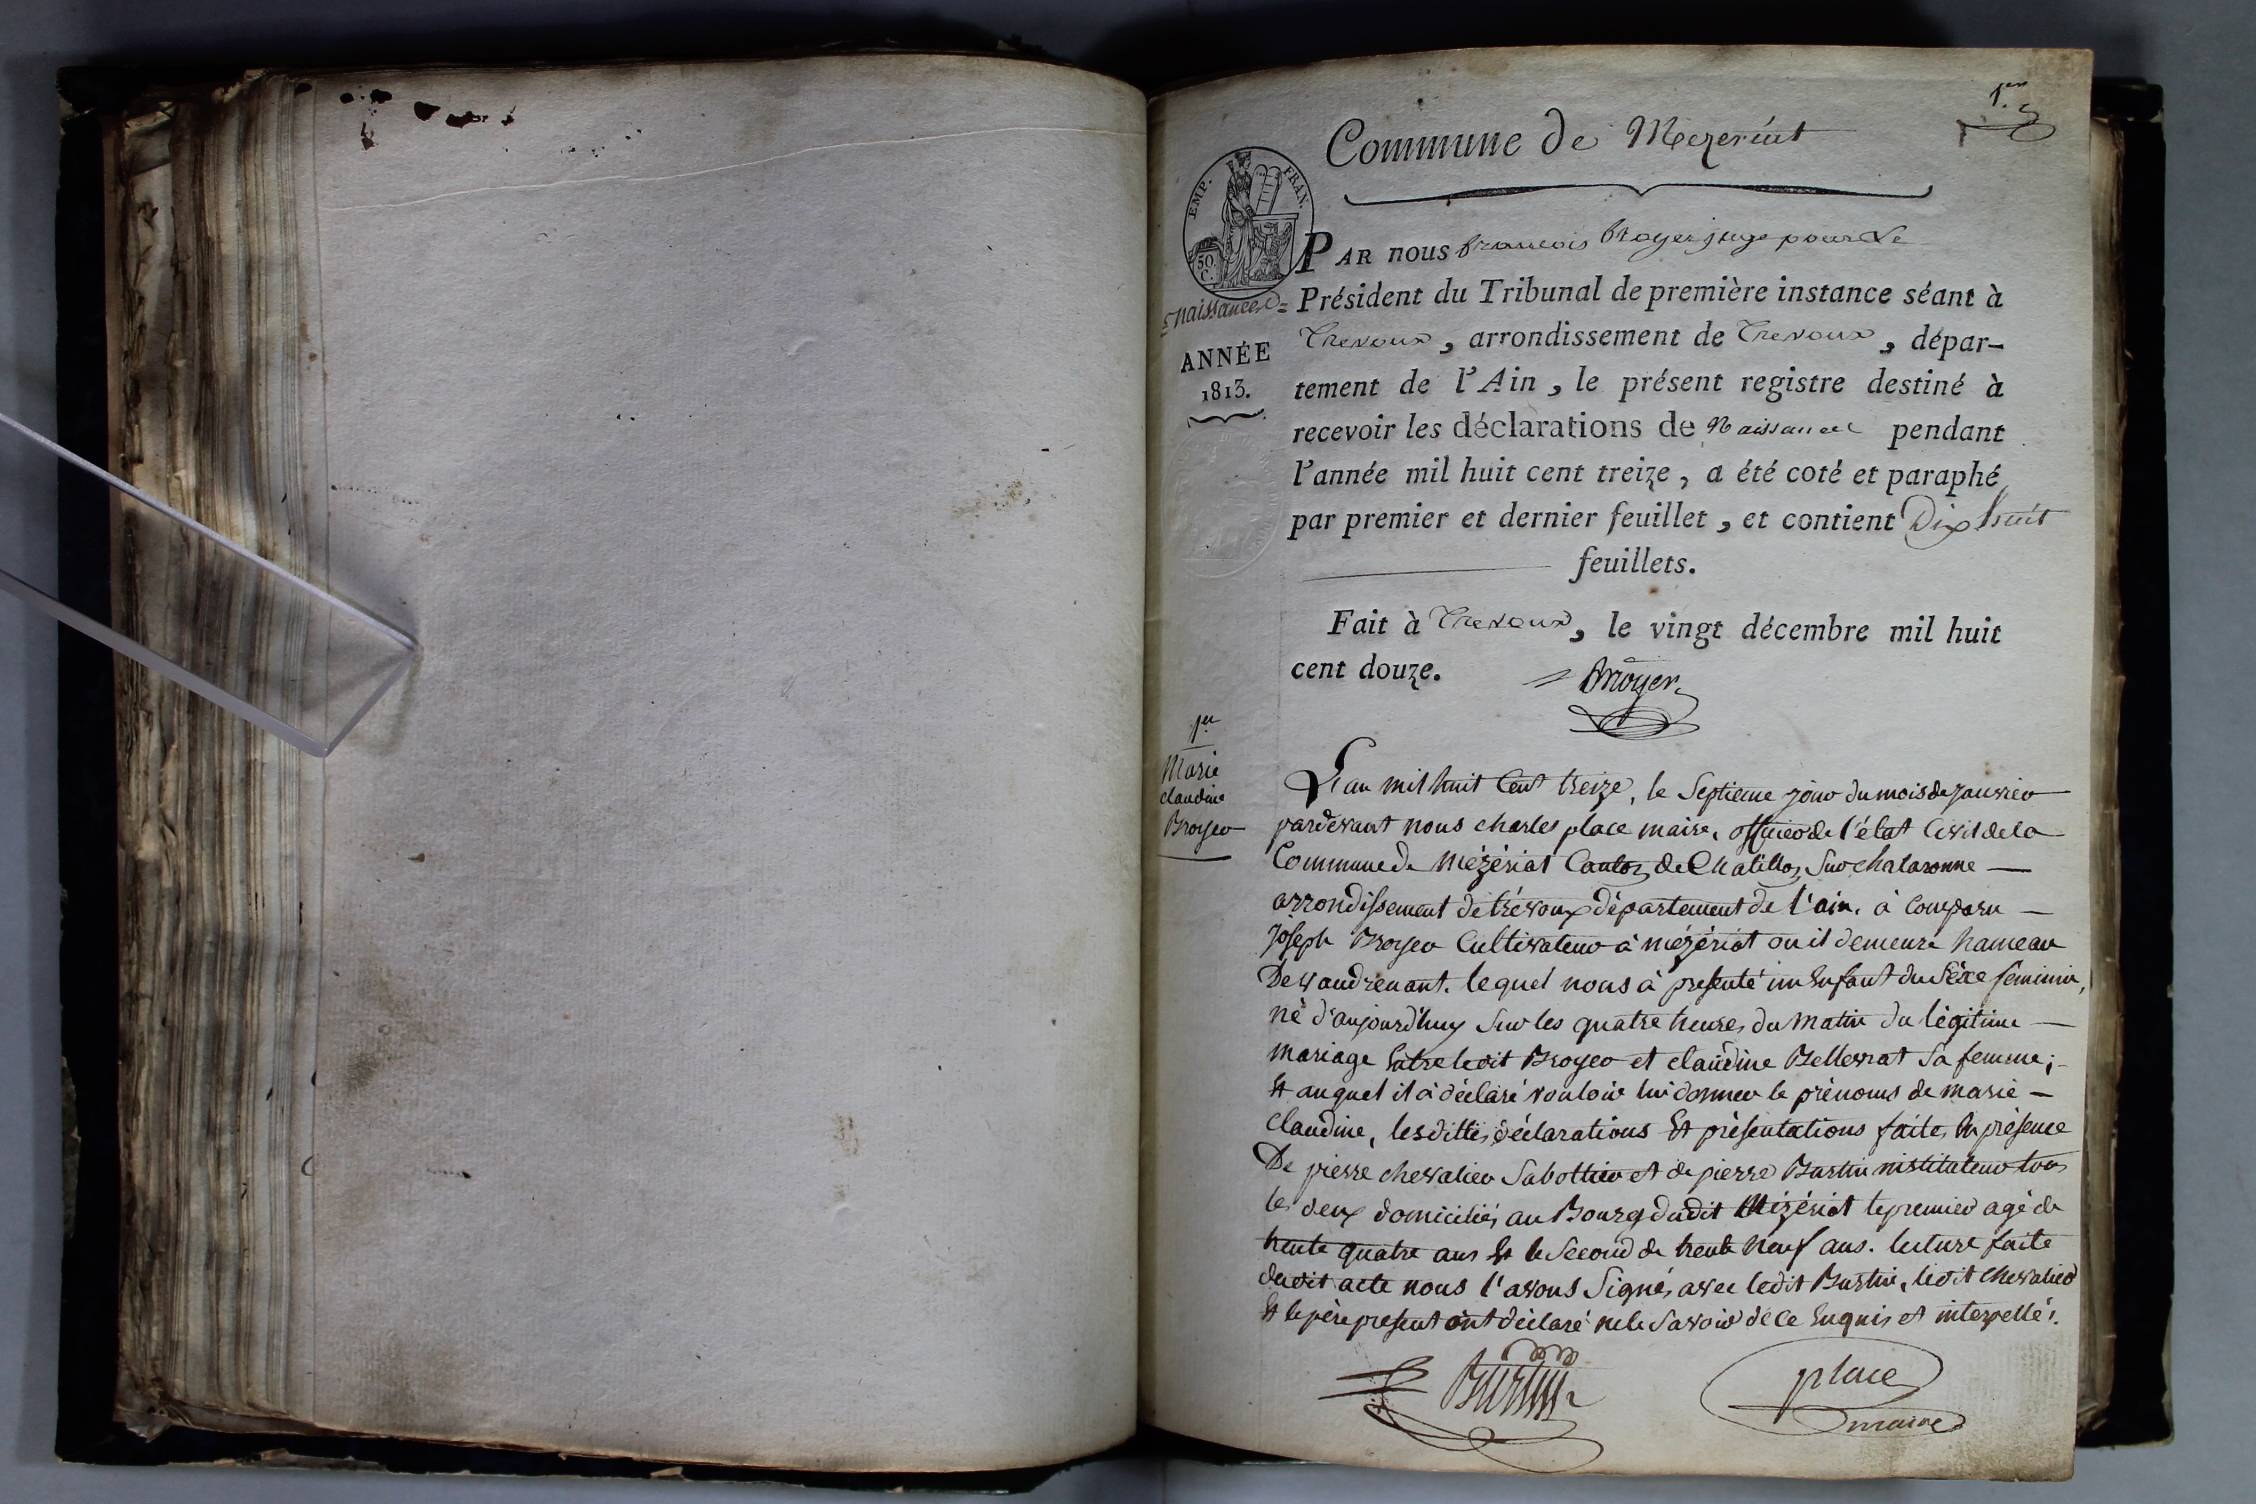 1.er
Commune de Mezeriat
EMP. FRAN.
50. C.
PAR nous francois Broyer juge pour Le
Naissances
Président du Tribunal de première instance séant à
Trevoux, arrondissement de Trevoux, dépar-
ANNÉE
1813.
tement de l'Ain, le présent registre destiné à
recevoir les déclarations de Naissance pendant
l'année mil huit cent treize, a été coté et paraphé
par premier et dernier feuillet, et contient Dix huit
feuillets.
Fait à Trevoux, le vingt décembre mil huit
cent douze.
Broyer
1.er
Marie
claudine
Broyer
L'an mil huit Cent treize, le Septieme jour du mois de janvier
pardevant nous charles place maire, officier de l'état Civil de la
Commune de Mézériat Canton de Chatillon Sur chalaronne —
arrondissement de trévoux département de l'ain. à comparu —
Joseph Broyer Cultivateur à mézériat ou il demeure hameau
De vaudrenant. lequel nous à presenté un Enfant du Sèxe féminin,
né d'aujourd'huy Sur les quatre heures du matin du légitime —
mariage Entre ledit Broyer et claudine Bellevrat Sa femme; -
Et auquel il à déclaré vouloir lui donner le prénoms de marie —
Claudine, lesdittes déclarations Et présentations faites En présence
De pierre chevalier Sabottier et de pierre Burtin instituteur tous
les deux domiciliés au Bourg dudit Mézériat le premier agé de
trente quatre ans Et le Second de trente Neuf ans. lecture faite
dudit acte nous l'avons Signé, avec ledit Burtin, ledit chevalier
Et le père present ont déclaré ne le Savoir de ce Enquis et interpellé.
Burtin
place
maire